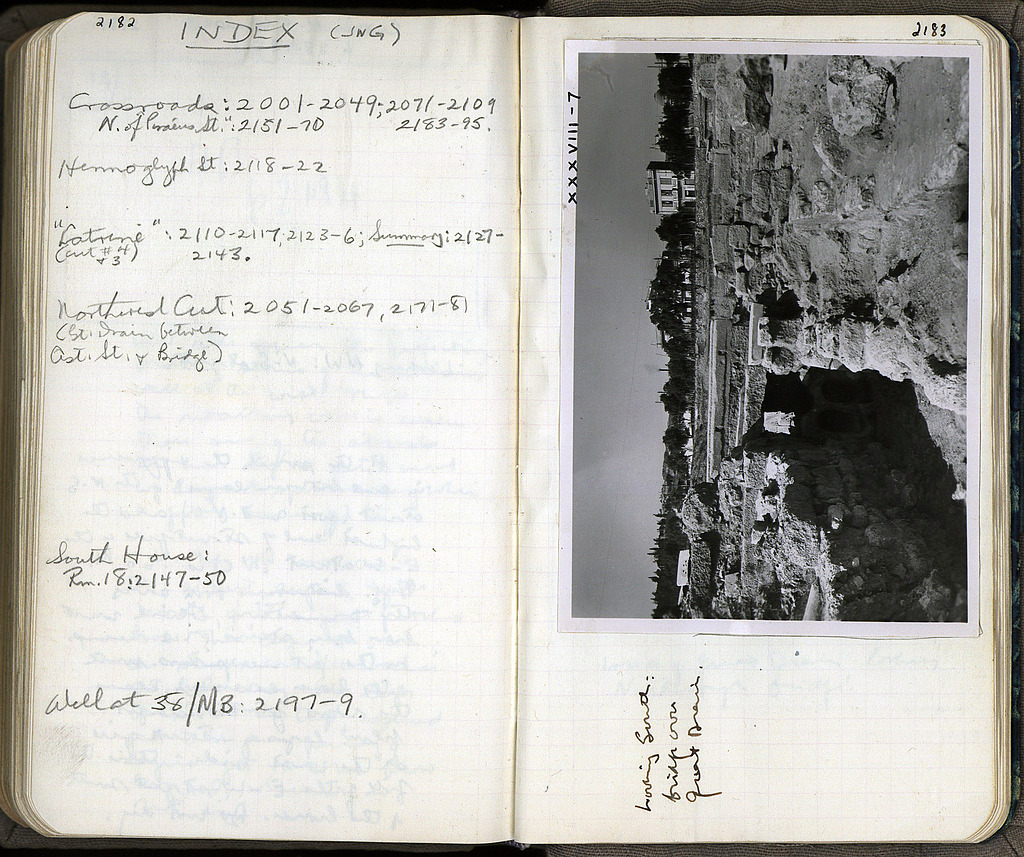 2182
INDEX (JNG)
Crossroads: 2001-2049; 2071-2109
N. of Peiraieus St.": 2151-70 2183-95.
Hermoglyph St: 2118-22
"Latrine": 2110-2117, 2123-6; Summary: 2127-
(cut #4 & 3) 2143.
Northwest Cut: 2051-2067, 2171-81
(St. Drain between
Ast. St. & Bridge)
South House:
Rm. 18: 2147-50
Well at 38/MB: 2197-9.
2183
XXXVIII-7
Looking South:
bridge over
great Drain.